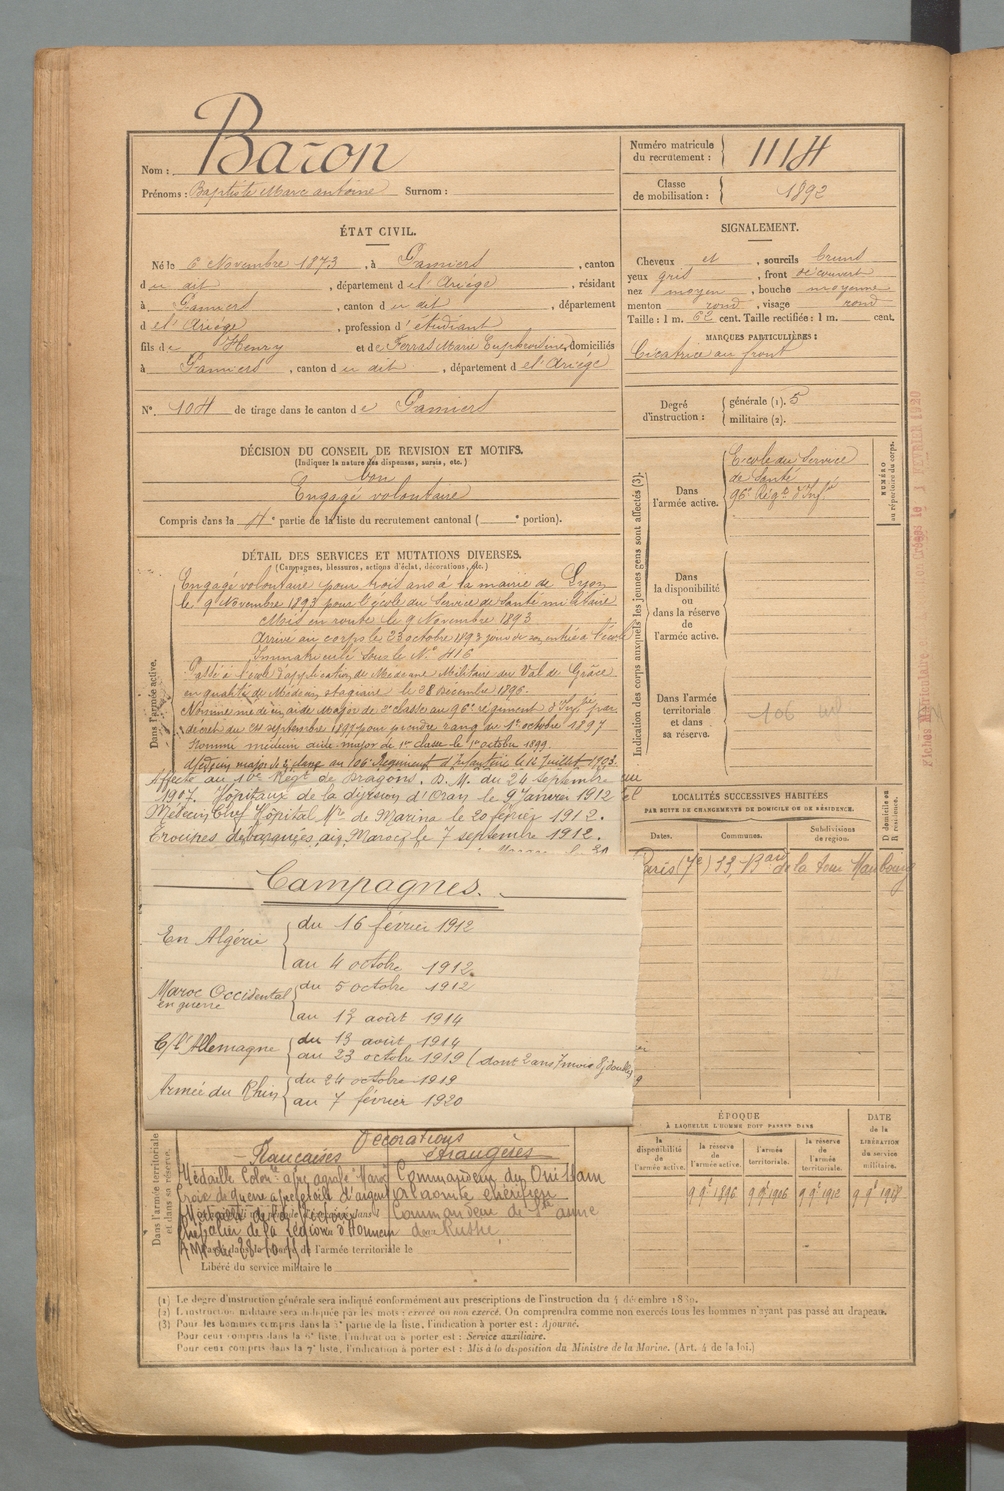 Nom : Baron
Prénoms : Baptiste Marc antoine Surnom :
Numéro matricule du recrutement : 1114
Classe de mobilisation : 1892
ÉTAT CIVIL.
Né le 6 Novembre 1873, à Pamiers, canton
du dit, département de l'Ariège, résidant
à Pamiers, canton du dit, département
de l'Ariège, profession d'étudiant
fils de Henry et de Ferras Marie, domiciliés
à Pamiers, canton du dit, département de l'Ariège
N° 104 de tirage dans le canton de Pamiers
SIGNALEMENT.
Cheveux et, sourcils bruns
yeux gris, front découvert
nez moyen, bouche moyenne
menton rond, visage rond
Taille : 1 m. 62 cent. Taille rectifiée : 1 m. cent.
MARQUES PARTICULIÈRES :
Cicatrice au front
Degré d'instruction : générale (1). 5
militaire (2).
DÉCISION DU CONSEIL DE REVISION ET MOTIFS.
(Indiquer la nature des dispenses, sursis, etc.)
bon
Engagé volontaire
Compris dans la 4e partie de la liste du recrutement cantonal ( e portion).
Indication des corps auxquels les jeunes gens sont affectés (3).
Dans l'armée active.
Ecole du Service
de Santé
96e Régt d'Infie
NUMÉRO au répertoire du corps.
Dans la disponibilité ou dans la réserve de l'armée active.
Dans l'armée territoriale et dans sa réserve.
106
DÉTAIL DES SERVICES ET MUTATIONS DIVERSES.
(Campagnes, blessures, actions d'éclat, décorations, etc.)
Dans l'armée active.
Engagé volontaire pour trois ans à la mairie de Lyon
le 9 Novembre 1893 pour l'école du Service de Santé militaire
Mis en route le 9 Novembre 1893
Arrivé au corps le 23 octobre 1893 jour de son entrée à l'école
Immatriculé sous le N° 416
Passé à l'école d'application de Médecine Militaire du Val de Grâce
en qualité de Médecin stagiaire le 28 Décembre 1896.
Nommé médecin aide major de 2e classe au 96e régiment d'Infie par
décret du 24 septembre 1897 pour prendre rang du 1er octobre 1897
Nommé médecin aide major de 1re classe le 1er octobre 1899
Médecin major de 2e classe au 106e Régiment d'Infanterie le 12 Juillet 1903.
Affecté au 10e Régt de Dragons. D. M. du 24 septembre
1907. Hôpitaux de la division d'Oran le 9 Janvier 1912
Médecin Chef Hôpital Mre de Marnia le 20 février 1912.
Troupes débarquées au Maroc le 7 septembre 1912.
LOCALITÉS SUCCESSIVES HABITÉES
PAR SUITE DE CHANGEMENTS DE DOMICILE OU DE RÉSIDENCE.
Dates. Communes. Subdivisions de région. D domicile ou R résidence.
Paris (7e) 13, Bard de la tour Maubourg
Campagnes.
En Algérie du 16 février 1912
au 4 octobre 1912.
Maroc Occidental en guerre du 5 octobre 1912
au 13 août 1914
C/ l'Allemagne du 13 août 1914
au 23 octobre 1919 (dont 2 ans 7 mois 8 j doubles
Armée du Rhin du 24 octobre 1919
au 7 février 1920
Dans l'armée territoriale et dans sa réserve.
Décorations
Françaises Etrangères
Médaille Colonle agrafe "Maroc" Commandeur du Ouissam
Croix de guerre étoile d'argent alaouite chérifien
Médaille de la Victoire Commandeur de Ste anne
Chevalier de la Légion d'Honneur de Russie
de l'armée territoriale le
Libéré du service militaire le
ÉPOQUE
À LAQUELLE L'HOMME DOIT PASSER DANS
la disponibilité de l'armée active. la réserve de l'armée active. l'armée territoriale. la réserve de l'armée territoriale.
DATE de la LIBÉRATION du service militaire.
9 9bre 1896 9 9bre 1906 9 9bre 1912 9 9bre 1918
(1) Le degré d'instruction générale sera indiqué conformément aux prescriptions de l'instruction du 4 décembre 1889.
(2) L'instruction militaire sera indiquée par les mots : exercé ou non exercé. On comprendra comme non exercés tous les hommes n'ayant pas passé au drapeau.
(3) Pour les hommes compris dans la 5e partie de la liste, l'indication à porter est : Ajourné.
Pour ceux compris dans la 6e liste, l'indication à porter est : Service auxiliaire.
Pour ceux compris dans la 7e liste, l'indication à porter est : Mis à la disposition du Ministre de la Marine. (Art. 4 de la loi.)